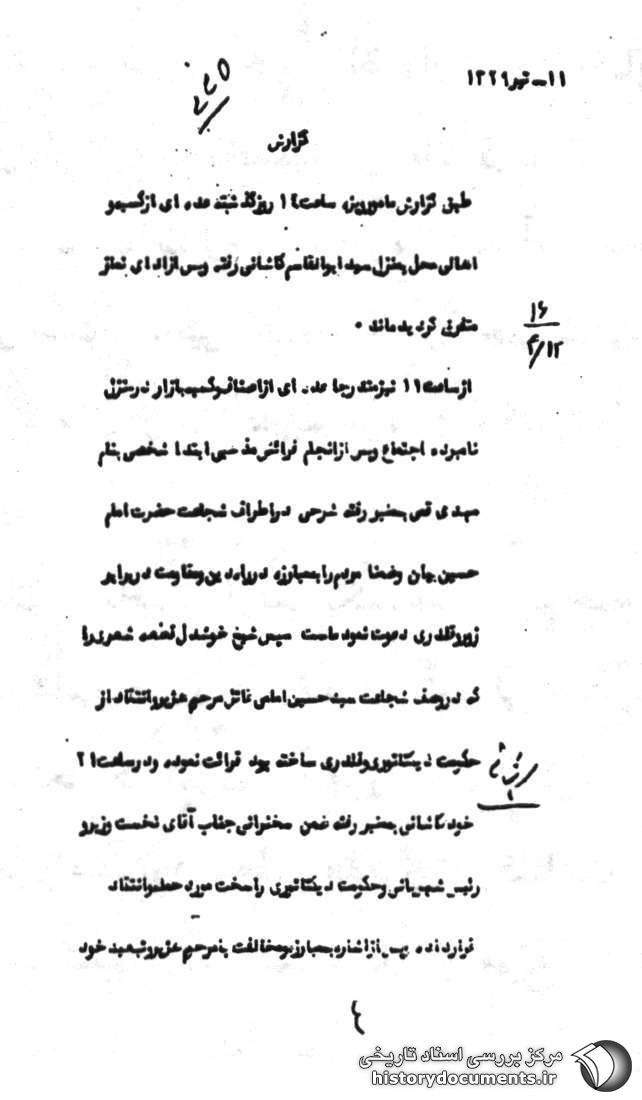 ۱۱ـ تیر ۱۳۲۹
گزارش
طبق گزارش مامورین، ساعت ۱۴ روز گذشته عده ای از کسبه و
اهالی محل بمنزل سید ابوالقاسم کاشانی رفته وپس از ادای نماز
متفرق گردیده‌اند ۰
از ساعت ۱۱ نیز متدرجا عده ای از اصناف وکسبه بازار در منزل
نامبرده اجتماع وپس از انجام فرائض مذهبی ابتدا شخصی بنام
مهدی قمی بمنبر رفته شرحی در اطراف شجاعت حضرت امام
حسین بیان وضمنا مردم را بمبارزه در راه دین ومقاومت در برابر
زور وقلدری دعوت نموده است سپس شیخ خوشدل قطعه شعری را
که در وصف شجاعت سید حسین امامی قاتل مرحوم هژیر وانتقاد از
حکومت دیکتاتوری وقلدری ساخته بود قرائت نموده ودر ساعت ۱۲
خود کاشانی بمنبر رفته ضمن سخنرانی جناب آقای نخست وزیر و
رئیس شهربانی وحکومت دیکتاتوری را سخت مورد حمله وانتقاد
قرار داده پس از اشاره بمبارزه ومخالفت با مرحوم هژیر وتبعید خود
۱۶
۴/۱۲
۴
مرکز بررسی اسناد تاریخی
historydocuments.ir